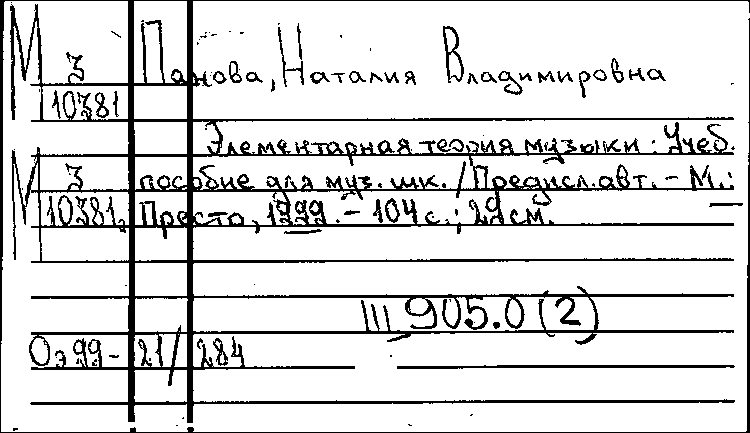 М 3 Панова, Наталия Владимировна
10381
Элементарная теория музыки: Учеб.
М 3 пособие для муз. шк. / Предисл. авт. - М.:
10381, Престо, 1999. - 104 с.; 29 см.
III 905.0 (2)
Оэ 99 - 21/284